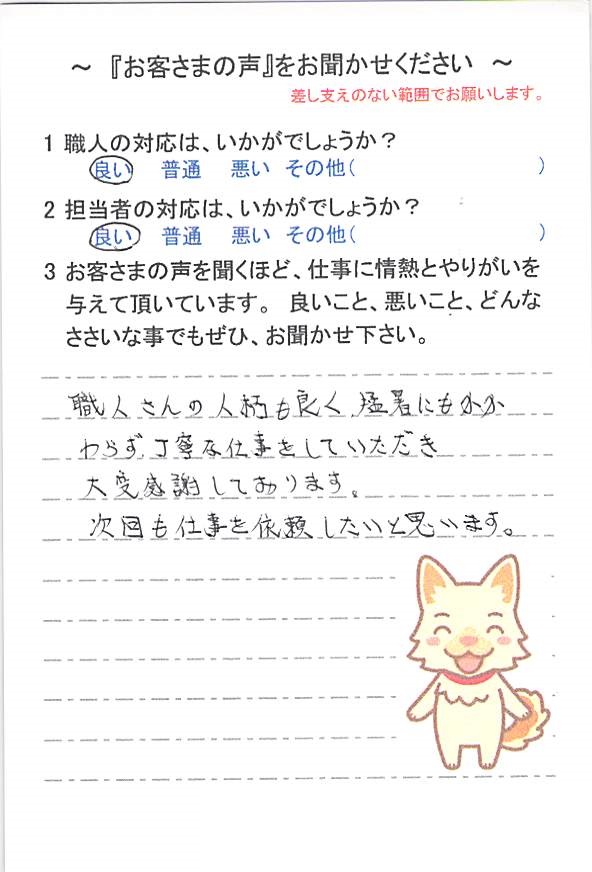 ～ 『お客さまの声』をお聞かせください ～
差し支えのない範囲でお願いします。
1 職人の対応は、いかがでしょうか？
良い 普通 悪い その他( )
2 担当者の対応は、いかがでしょうか？
良い 普通 悪い その他( )
3 お客さまの声を聞くほど、仕事に情熱とやりがいを
与えて頂いています。 良いこと、悪いこと、どんな
ささいな事でもぜひ、お聞かせ下さい。
職人さんの人柄も良く、猛暑にもかか
わらず、丁寧な仕事をしていただき
大変感謝しております。
次回も仕事を依頼したいと思います。